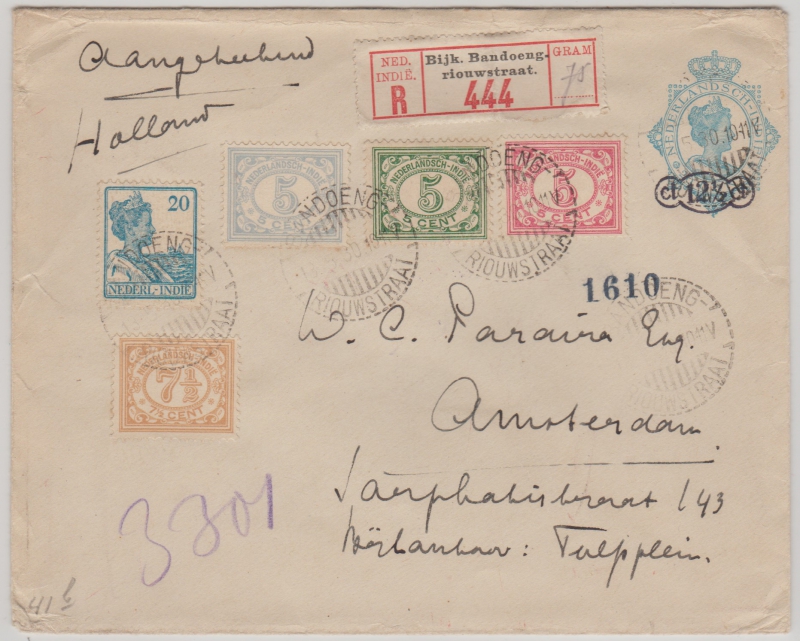 Aangeteekend
Holland
NED. INDIË.
R
Bijk. Bandoeng-
riouwstraat.
444
GRAM
75
NEDERLANDSCH-INDIË
ct 12½ ct
20
NEDERL-INDIË
NEDERLANDSCH-INDIE
5
5 CENT
NEDERLANDSCH-INDIE
5
5 CENT
NEDERLANDSCH-INDIE
5
5 CENT
NEDERLANDSCH-INDIE
7½
7½ CENT
RIOUWSTRAAT
1610
W. C. Paraira Esq.
Amsterdam.
Sarphatistraat 143
Tulpplein.
3301
41 b